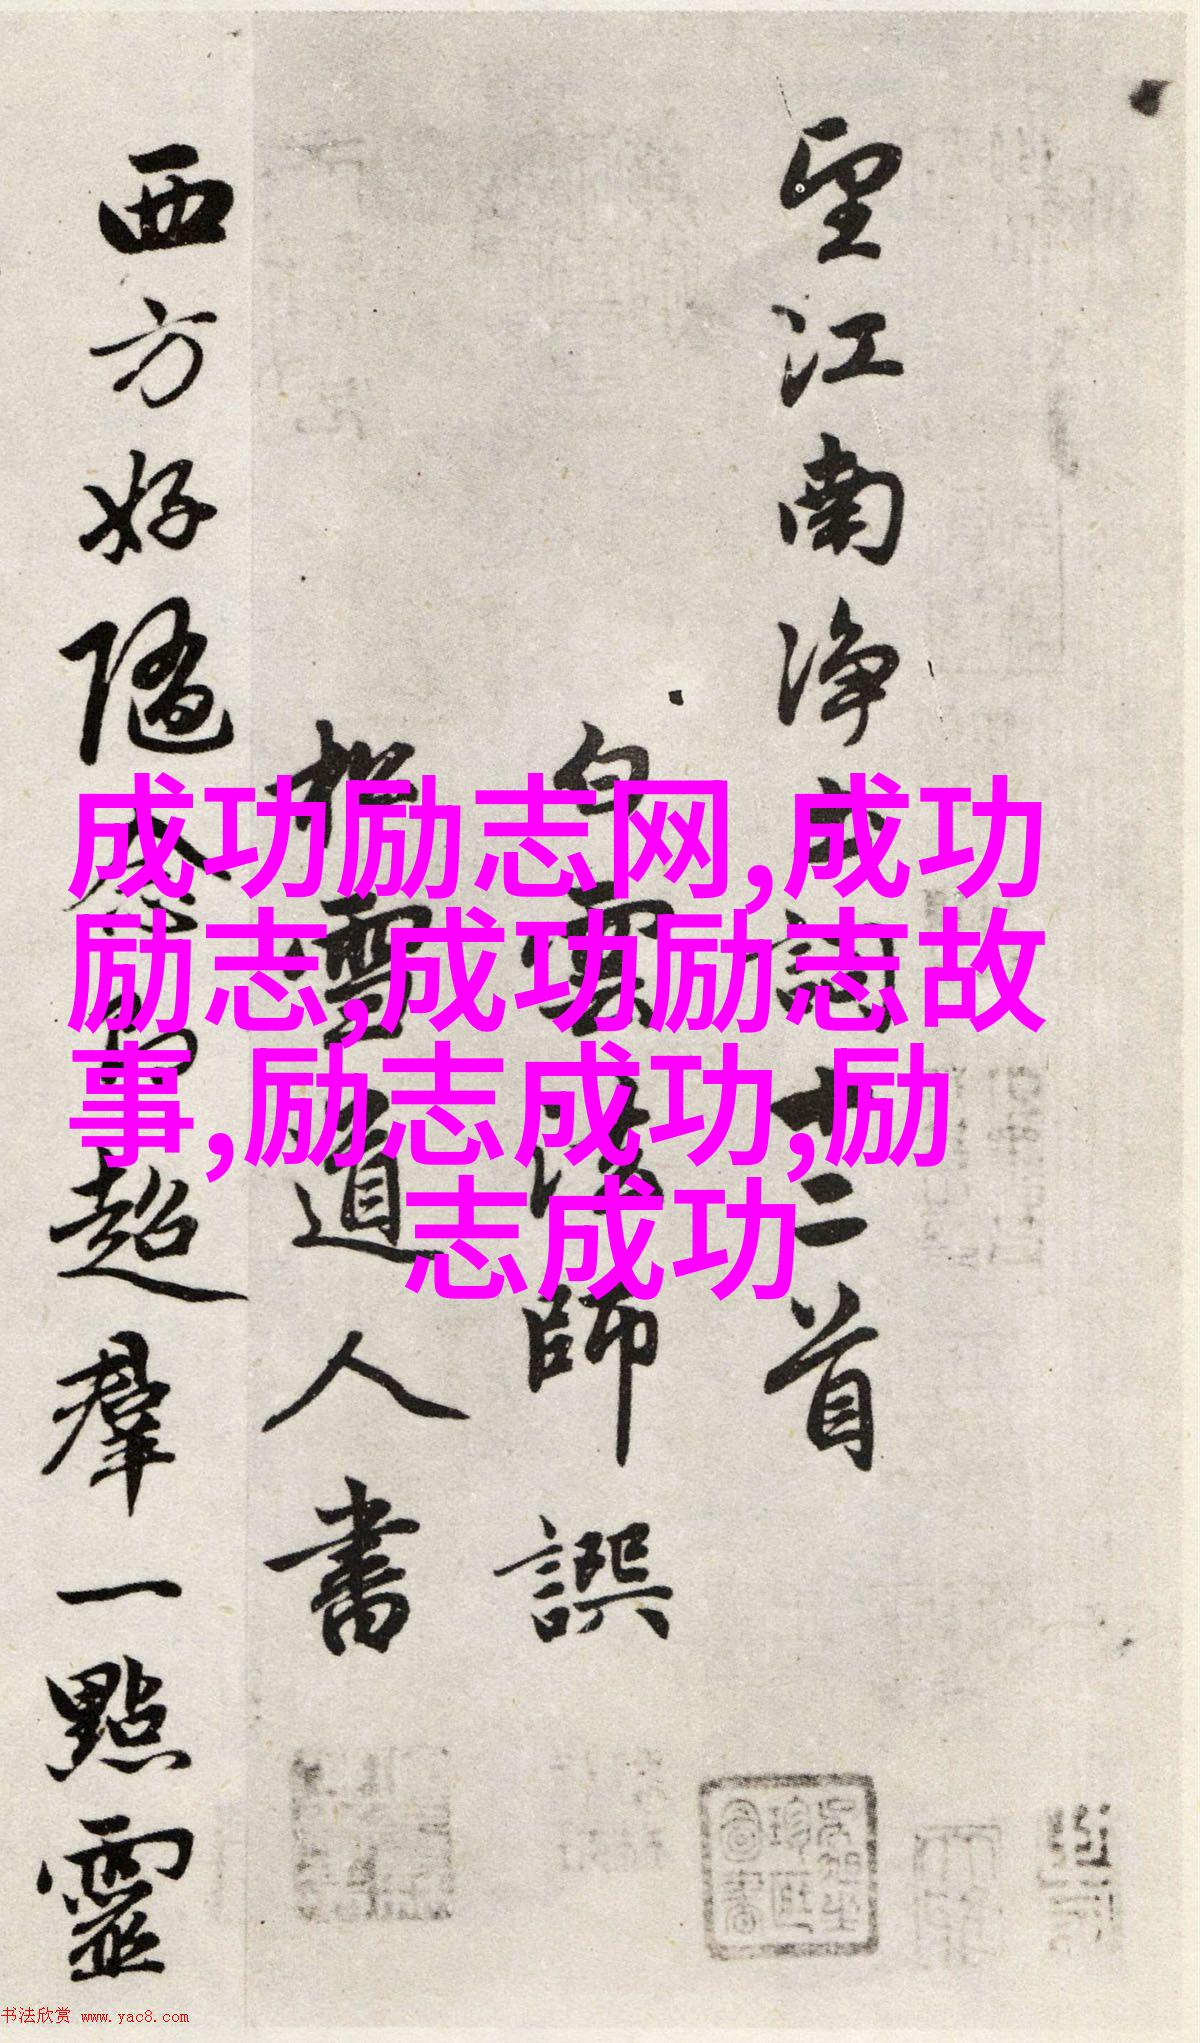 望江南净土詞十二首
白雲法師譔
松雪道人書
西方好隨念即超羣一點靈
成功励志网,成功
励志,成功励志故
事,励志成功,励
志成功
书法欣赏 www.yac8.com